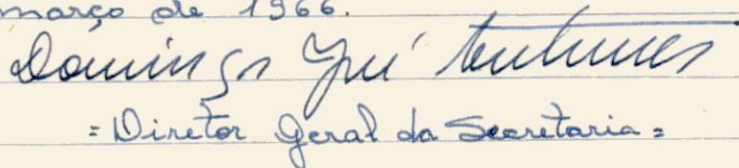 março de 1966.
Domingos José Antunes
= Diretor Geral da Secretaria =